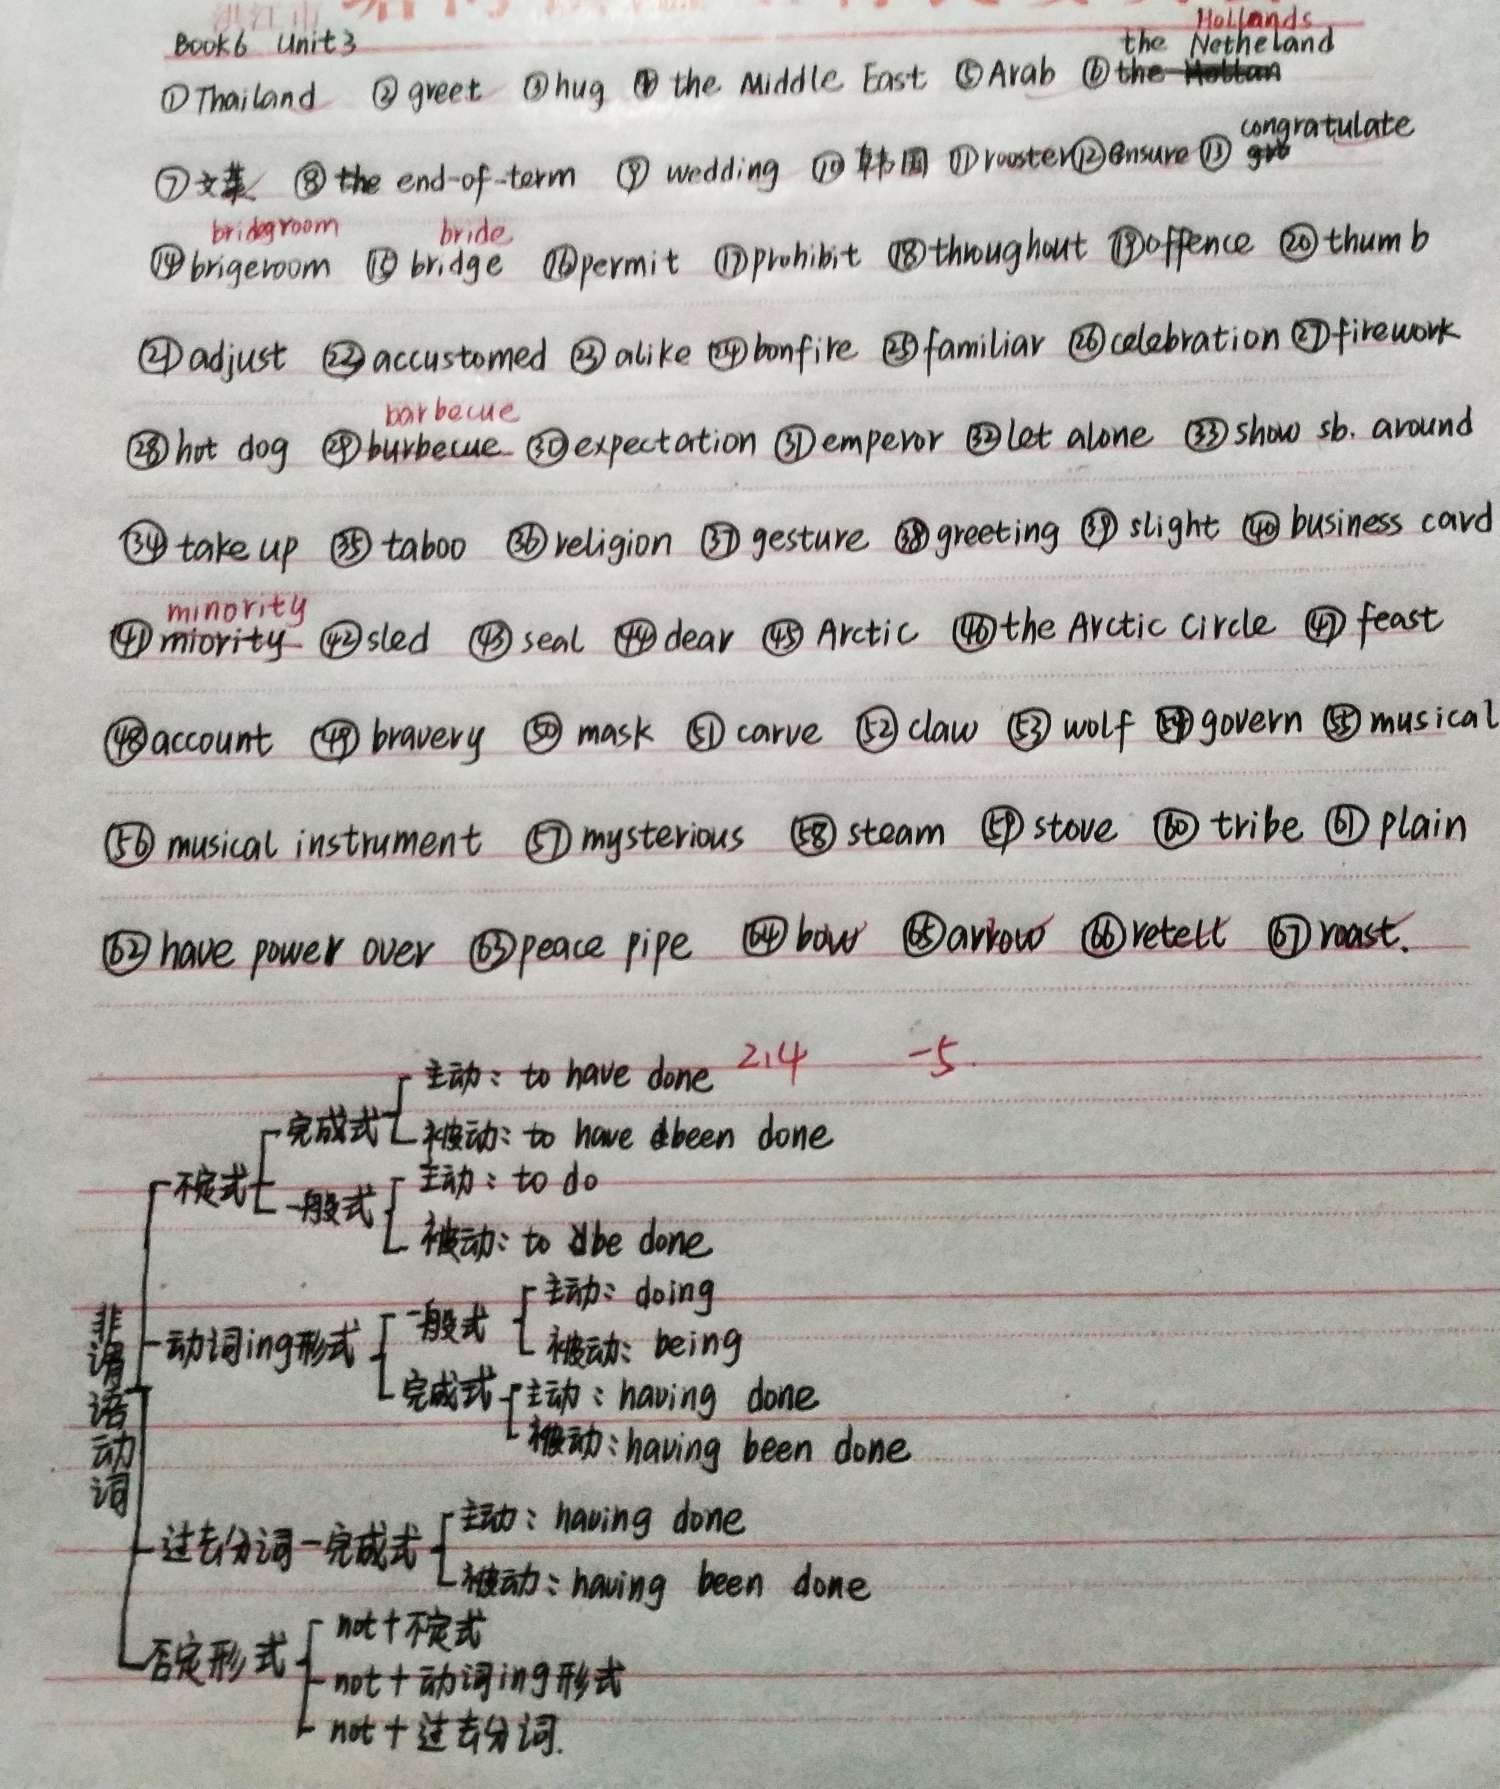 Book6 Unit3
Hollands
the Netheland
①Thailand ②greet ③hug ④the Middle East ⑤Arab ⑥the
congratulate
⑦文莱 ⑧the end-of-term ⑨wedding ⑩韩国 ⑪rooster ⑫ensure ⑬gro
bridegroom bride
⑭brigeroom ⑮bridge ⑯permit ⑰prohibit ⑱throughout ⑲offence ⑳thumb
㉑adjust ㉒accustomed ㉓alike ㉔bonfire ㉕familiar ㉖celebration ㉗firework
barbecue
㉘hot dog ㉙burbecue ㉚expectation ㉛emperor ㉜let alone ㉝show sb. around
㉞take up ㉟taboo ㊱religion ㊲gesture ㊳greeting ㊴slight ㊵business card
minority
㊶miority ㊷sled ㊸seal ㊹dear ㊺Arctic ㊻the Arctic Circle ㊼feast
㊽account ㊾bravery ㊿mask (51)carve (52)claw (53)wolf (54)govern (55)musical
(56)musical instrument (57)mysterious (58)steam (59)stove (60)tribe (61)plain
(62)have power over (63)peace pipe (64)bow (65)arrow (66)retell (67)roast.
2,4 -5
主动：to have done
完成式
被动：to have been done
不定式
主动：to do
一般式
被动：to be done
主动：doing
一般式
被动：being
非谓语动词
动词ing形式
完成式 主动：having done
被动：having been done
主动：having done
过去分词－完成式
被动：having been done
not＋不定式
否定形式
not＋动词ing形式
not＋过去分词.